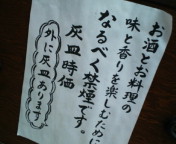 お酒とお料理の
味と香りを楽しむために
なるべく禁煙です。
灰皿時価
外に灰皿あります。